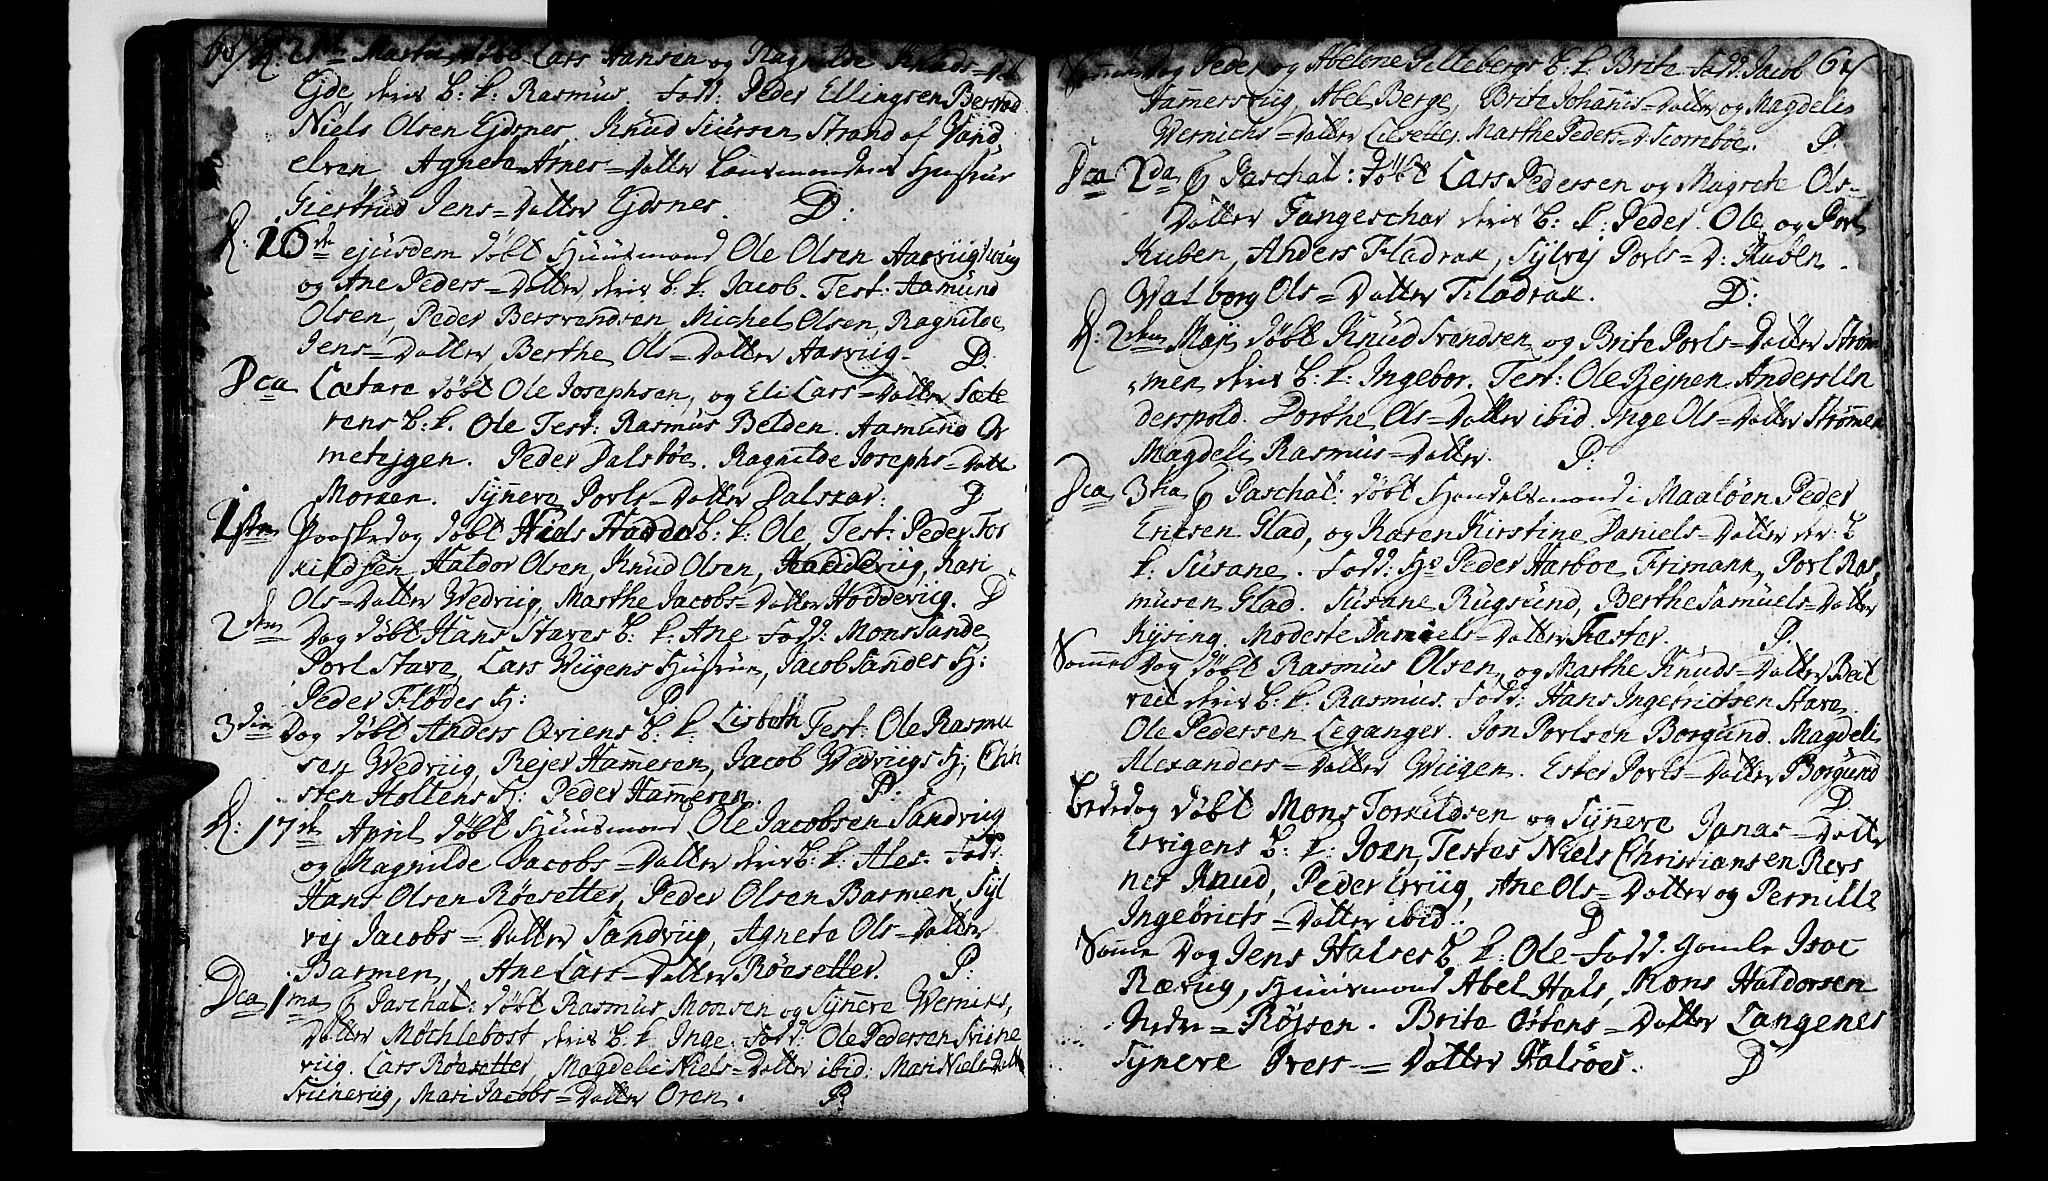 60/ d: 21de Martii døbt Lars Hansen og Ragnilde Knuds=Dat
Ejde deris b: k: Rasmus. Fadd: Peder Ellingsen Berstad
Niels Olsen Ejdsnes. Knud Siursen Strand af Vand
elven Agneta Arnes=Datter Lensmandens Hustrue
Giertrud Jens=Datter Ejdsnes. D:
d: 26de ejusdem døbt Huusmand Ole Olsen Aarviig
og Ane Peders=Datter deris b: k: Jacob. Test: Aamund
Olsen, Peder Bersvendsen, Michel Olsen, Ragnilde
Jens=Datter, Berthe Ols=Datter Aarviig. D:
Dca Lætare døbt Ole Josephsen, og Eli Lars=Datter Sæte
rens b: k: Ole Test: Rasmus Belden. Aamund Or
metejgen. Peder Dalsbøe. Ragnilde Josephs=Datt
Morken. Synneve Povls=Datter Dalskar. D
1sten Paaskedag døbt Niels Hadde b: k: Ole, Test: Peder Tor
kildsen, Haldor Olsen, Knud Olsen, Haddeviig, Kari
Ols=Datter Wedviig, Marthe Jacobs=Datter Hoddeviig. D
2den Dag døbt Hans Staves b: k: Ane Fadd: Mons Sande
Povl Stave, Lars Wiigens Hustrue, Jacob Sandes H:
Peder Flødes H: P:
3die Dag døbt Anders Qviens b: k: Lisbeth Test: Ole Rasmu
sen Wedviig, Rejer Hameren, Jacob Wedviigs H; Chri
sten Holtens H: Peder Hameren. P:
d: 17de April døbt Huusmand Ole Jacobsen Sandviig
og Magnilde Jacobs=Datter deris b: k: Ales. Fadd:
Hans Olsen Røesetter, Peder Olsen Barmen, Syl
vej Jacobs=Datter Sandviig, Agneta Ols=Datter
Barmen, Ane Lars=Datter Røesetter. P:
Dca 1ma p Paschat: døbt Rasmus Monsen og Synneve Werniks
Datter Mochlebost deris b: k: Inge. Fadd: Ole Pedersen Sviine
viig. Lars Røesetter, Magdeli Niels=Datter ibid: Mari Niels Datt
Sviineviig, Mari Jacobs=Datter Oren. P:
Samme Dag Peder og Abelone Pilleberg b: k: Brite Fadd: Jacob 61
Hammersviig, Abel Berge, Brite Johanis=Datter og Magdeli
Wernichs=Datter Lilsetter. Marthe Peders=D: Scorrebøe. P.
Dca 2da p Paschat: døbt Lars Pedersen og Magrete Ols=
Datter Fangeschar deris b: k: Peder. Ole og Povl
Kuben, Anders Fladrak, Sylvej Povls=D: Kuben.
Walborg Ols=Datter Fladrak. D:
d: 2den Maji døbt Knud Svendsen og Brite Povls=Datter Strøm
men deris b: k: Ingebor. Test: Ole Rejnen Anders Un
derspold. Dorthe Ols=Datter ibid. Inge Ols=Datter Strømen
Magdeli Rasmus=Datter. P:
Dca 3tia p Paschat: døbt Handelsmand i Maaløen Peder
Eriksen Glad, og Karen Kirstine Daniels=Datter der: b
k: Susane. Fadd: Hr Peder Harboe Frimann, Povl Ras
musen Glad. Susane Rugsund, Berthe Samuels=Datter
Kysing. Modeste Daniels=Datter Fester. P.
Samme Dag døbt Rasmus Olsen, og Marthe Knuds=Datter Beit
veit deris b: k: Rasmus. Fadd: Hans Ingebrictsen Stave.
Ole Pedersen Leganger. Jon Povlsen Borgund. Magdeli
Alexanders=Datter Wiigen. Ester Povls=Datter Borgund
D.
Bededag døbt Mons Torkildsen og Synneve Janas=Datter
Ervigens b: k: Joen, Testes Niels Christiansen Revs
nes Knud, Peder Erviig, Ane Ols=Datter og Pernille
Ingebricts=Datter ibid: D
Samme Dag Jens Halses b: k: Ole Fadd. Gamle Isac
Ræviig, Huusmand Abel Hals, Mons Haldorsen
Nedre=Røjsen. Brite Østens=Datter Langenes
Synneve Ivers=Datter Halsøes. D